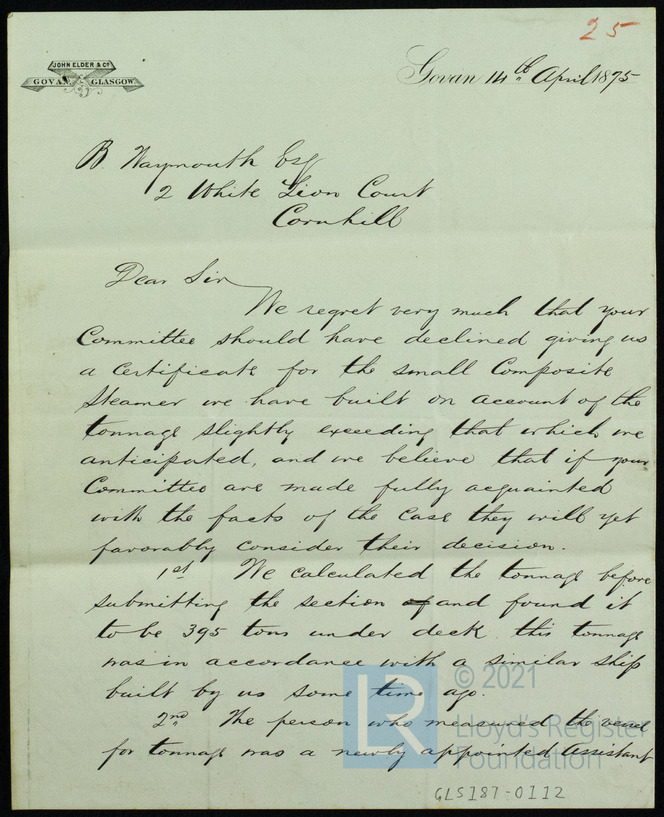 25
JOHN ELDER & Co
GOVAN GLASGOW
Govan 14th April 1875
B. Waymouth Esq
2 White Lion Court
Cornhill
Dear Sir
We regret very much that your
Committee should have declined giving us
a Certificate for the small Composite
Steamer we have built on account of the
tonnage slightly exceeding that which we
anticipated, and we believe that if your
Committee are made fully acquainted
with the facts of the case they will yet
favorably consider their decision.
1st We calculated the tonnage before
submitting the section of and found it
to be 395 tons under deck. this tonnage
was in accordance with a similar ship
built by us some time ago.
2nd The person who measured the vessel
for tonnage was a newly appointed Assistant
LR © 2021
Lloyd's Register
Foundation
GLS187-0112